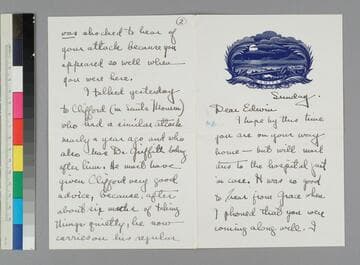 Sunday.
Dear Edwin
I hope by this time
you are on your way
home — but will send
this to the hospital just
in case. It was so good
to hear from Grace when
I phoned that you were
coming along well. I
(2)
was shocked to hear of
your attack because you
appeared so well when
you were here.
I talked yesterday
to Clifford (in Santa Monica)
who had a similar attack
nearly a year ago and who
also has Dr. Griffith looking
after him. He must have
given Clifford very good
advice, because, after
about six months of taking
things quietly, he now
carries on his regular